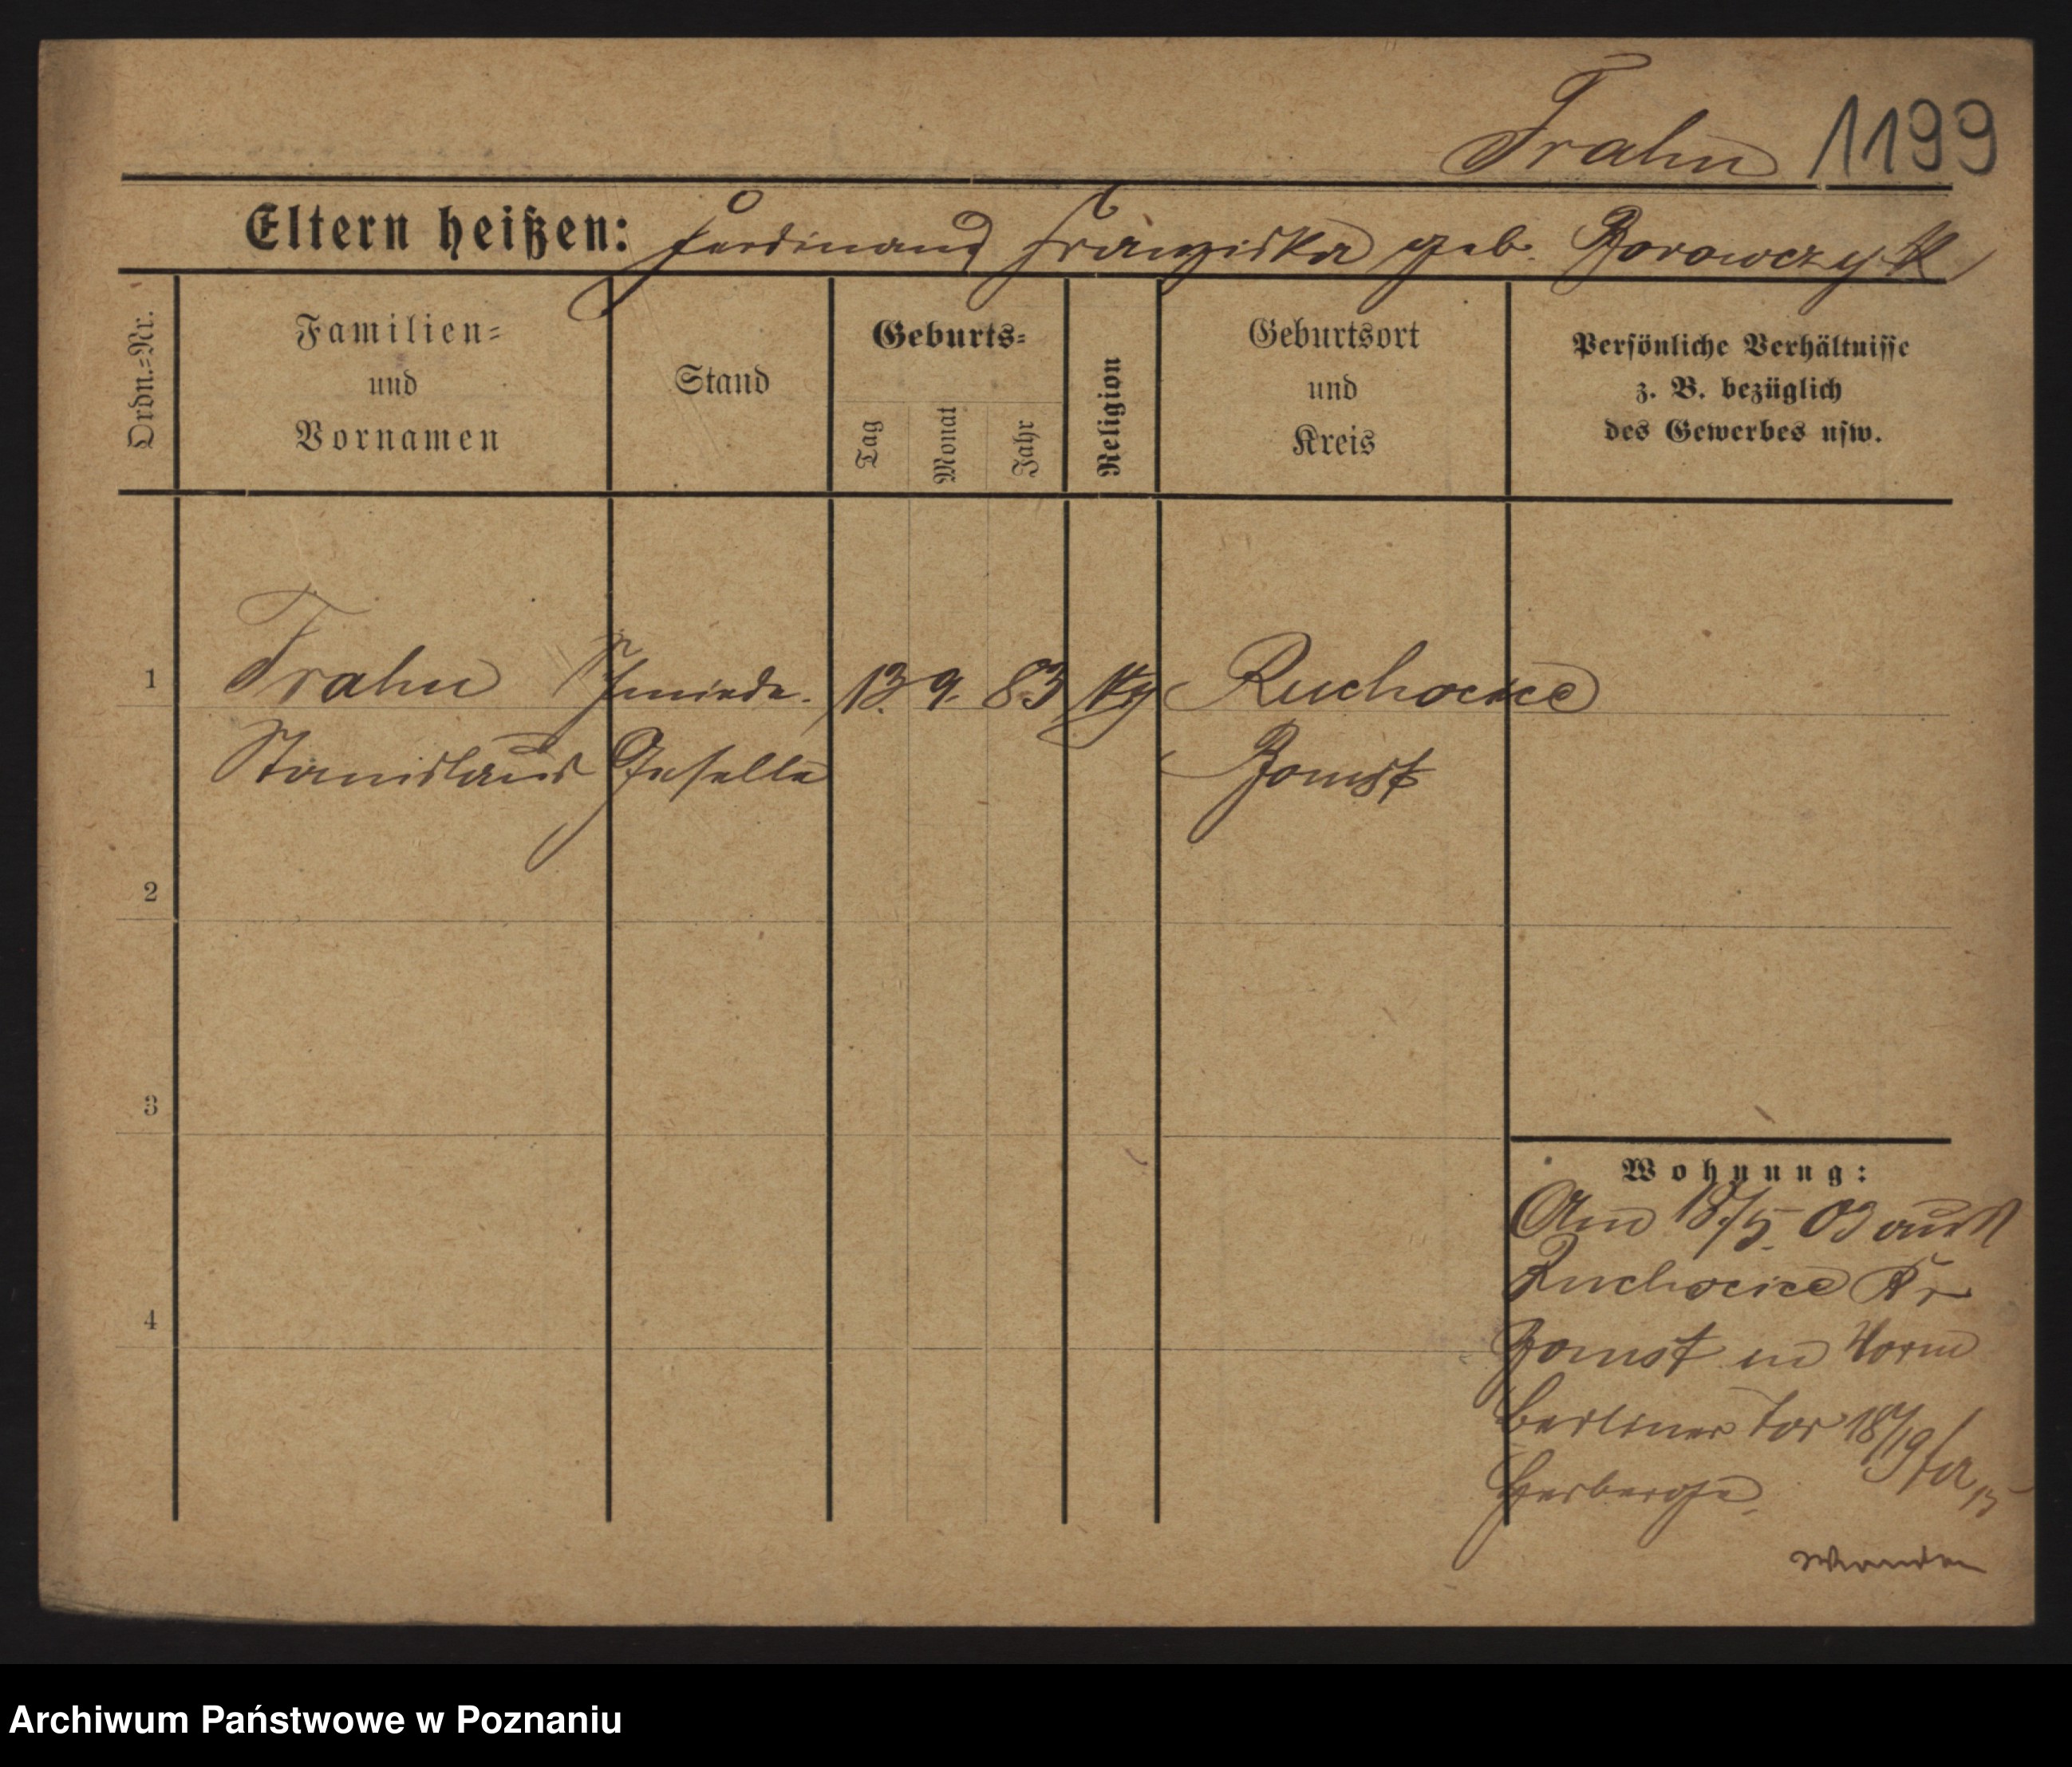 Frahn 1199
Eltern heißen: Ferdinand Franziska geb. Borowczyk
Ordn.=Nr.
Familien=
und
Vornamen
Stand
Geburts=
Tag
Monat
Jahr
Religion
Geburtsort
und
Kreis
Persönliche Verhältnisse
z. B. bezüglich
des Gewerbes usw.
1 Frahn Schmiede. 13. 9. 83 Ruchocice
Stanislaus Geselle Bomst
2
3
4
Wohnung:
Am 18/5. 03 aus
Ruchocice Kr
Bomst
Berliner Tor 18/19
Herberge.
Archiwum Państwowe w Poznaniu